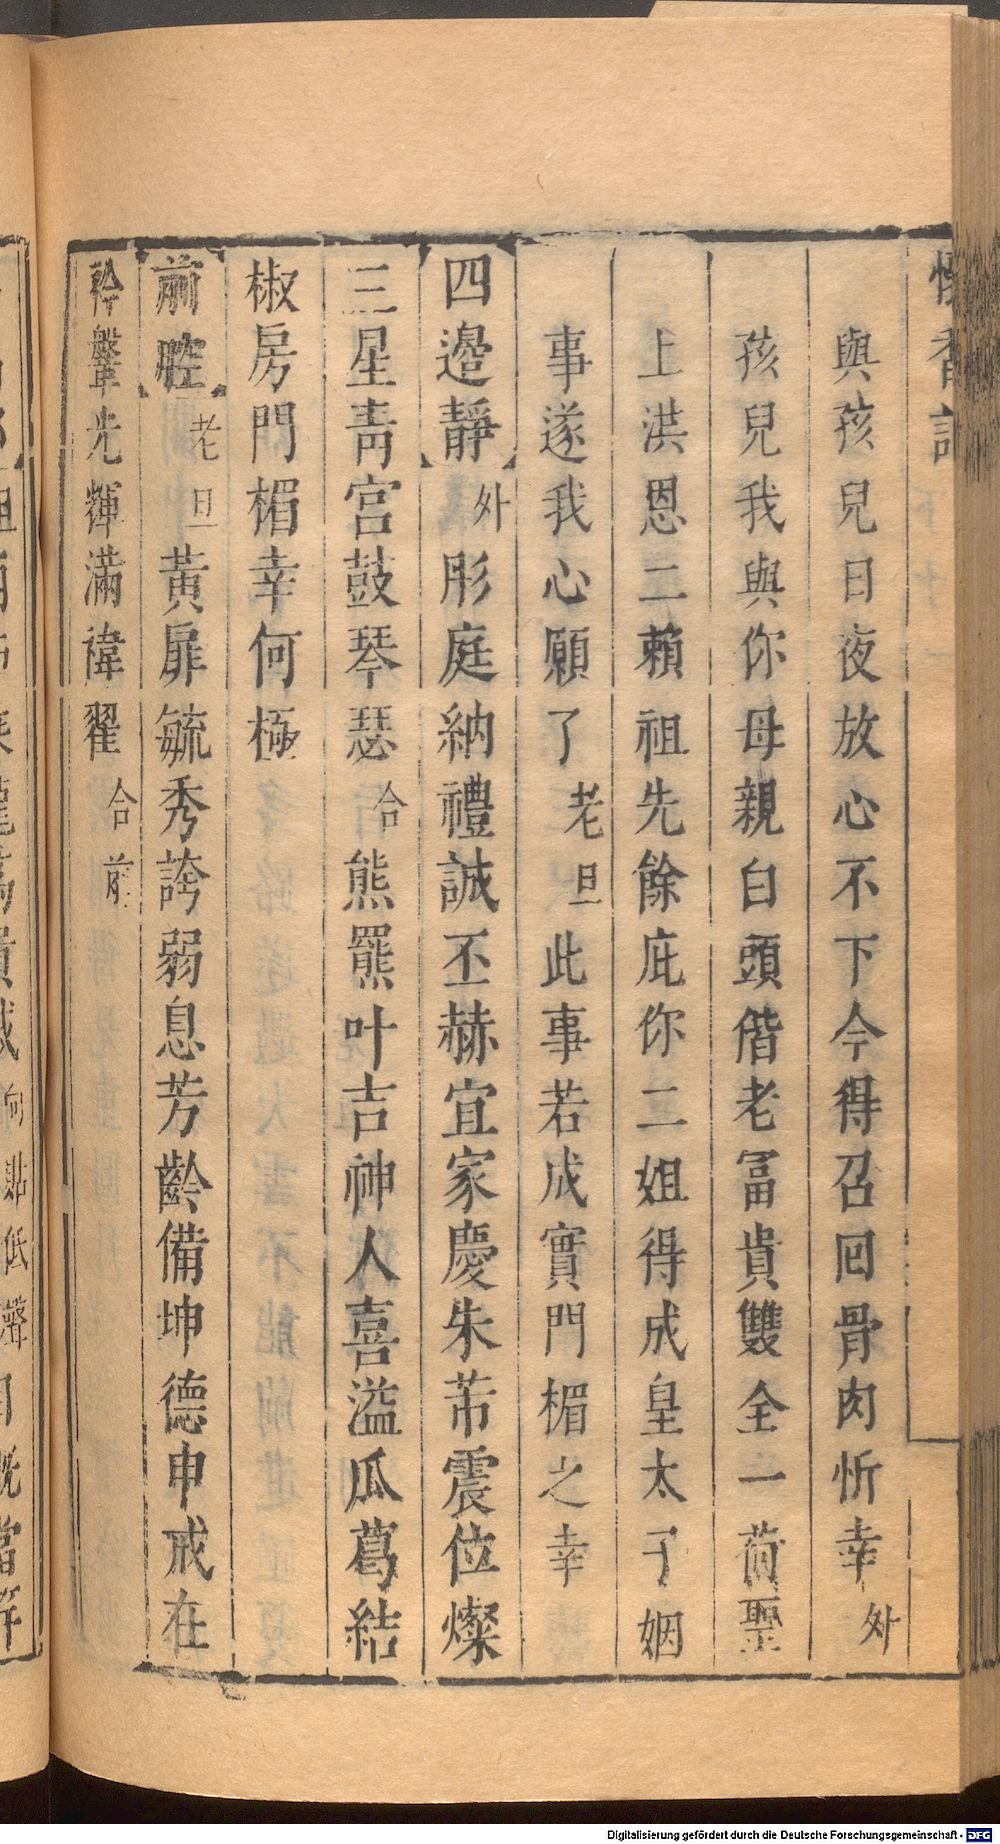 懷香記
與孩兒日夜放心不下今得召回骨肉忻幸外
孩兒我與你母親白頭偕老冨貴雙全一荷聖
上洪恩二賴祖先餘庇你二姐得成皇太子姻
事遂我心願了老旦此事若成實門楣之幸
四邉靜外彤庭納禮誠丕赫宜家慶朱芾震位燦
三星青宮鼓琴瑟合熊羆叶吉神人喜溢瓜葛結
椒房門楣幸何極
前腔老旦黃扉毓秀誇弱息芳齡備坤德申戒在
衿鞶光輝滿褘翟合前
Digitalisierung gefördert durch die Deutsche Forschungsgemeinschaft - DFG